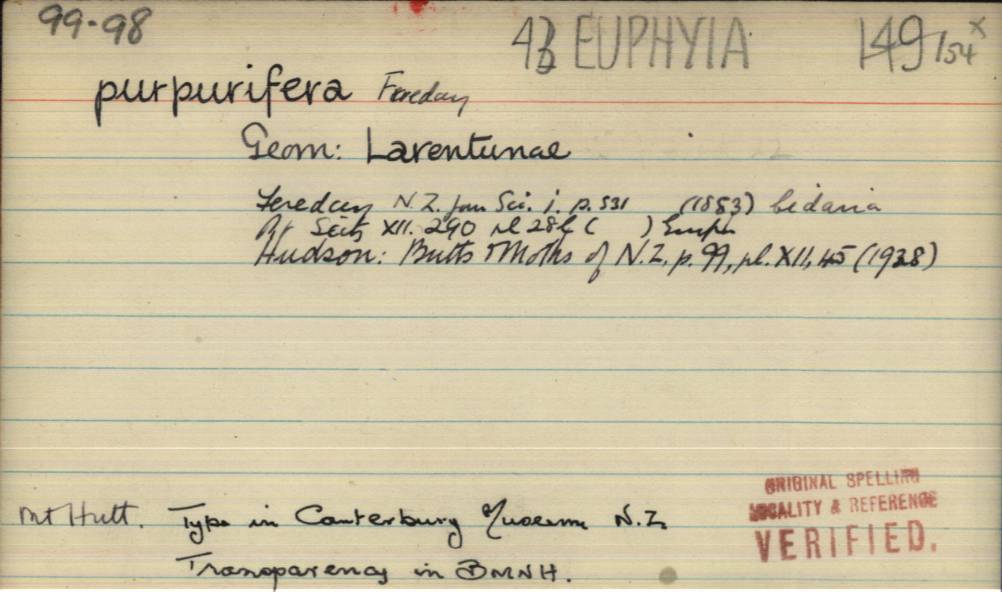 99-98 43 EUPHYIA 149/54 x
purpurifera Fereday
Geom: Larentiinae
Fereday N.Z. Jour Sci. i. p. 531 (1883) Cidaria
Pr Seitz XII. 290 pl 28h ( ) Euph
Hudson: Butts & Moths of N.Z. p. 99, pl. XII, 45 (1928)
Mt Hutt. Type in Canterbury Museum N.Z.
Transparency in BMNH.
ORIGINAL SPELLING
LOCALITY & REFERENCE
VERIFIED.